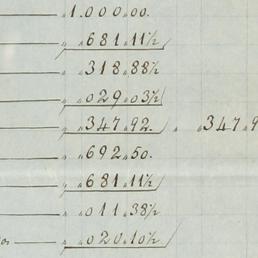 " 1.000,00.
" " 681,11½
" " 318,88½
" " 029,03½
" " 347,92. " " 347,9
" " 692,50.
" " 681,11½
" " 011,38½
" " 020,10½